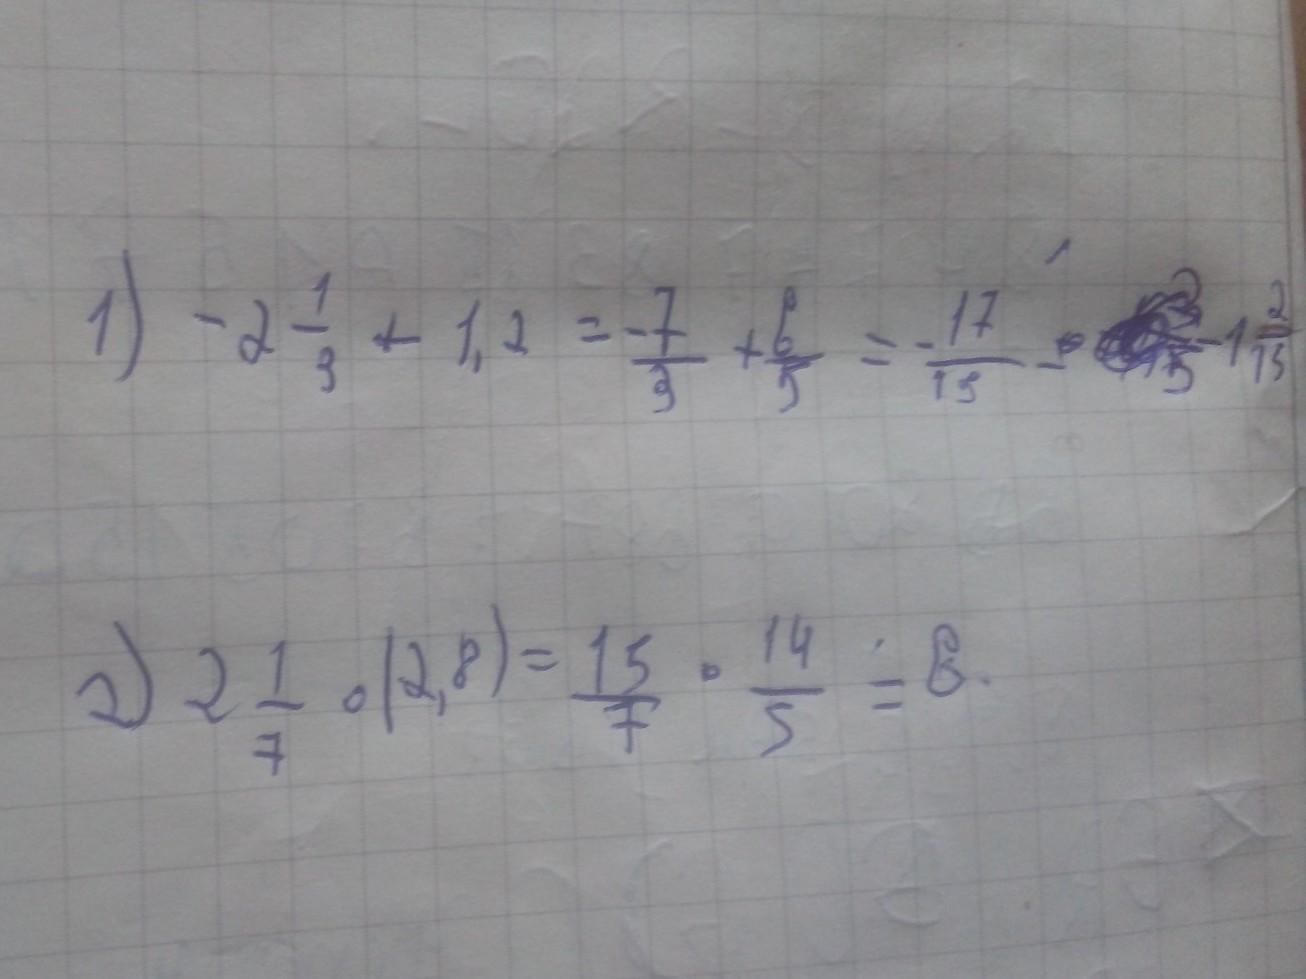 1) -2 1/3 + 1,2 = -7/3 + 6/5 = -17/15 = -1 2/15
2) 2 1/7 · (2,8) = 15/7 · 14/5 = 6.